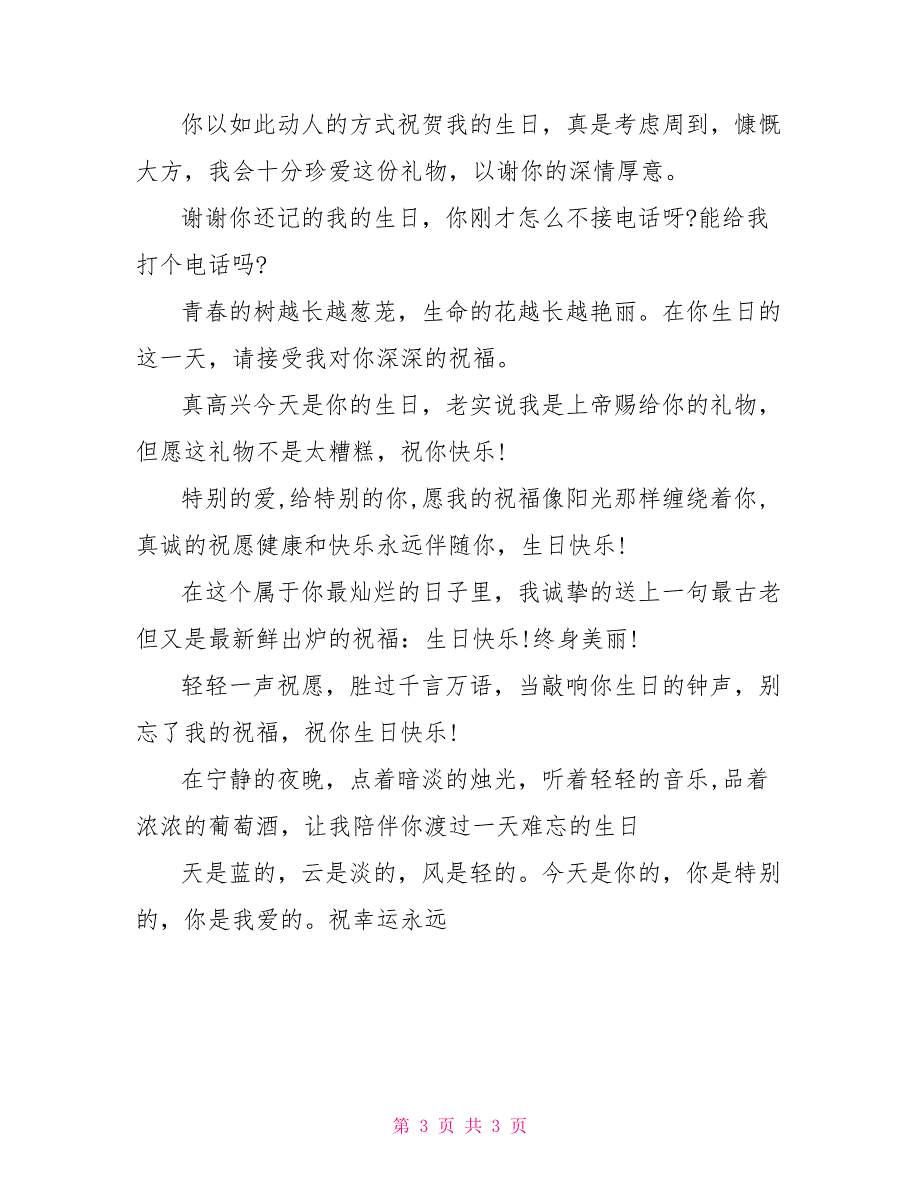 你以如此动人的方式祝贺我的生日，真是考虑周到，慷慨
大方，我会十分珍爱这份礼物，以谢你的深情厚意。
谢谢你还记的我的生日，你刚才怎么不接电话呀?能给我
打个电话吗?
青春的树越长越葱茏，生命的花越长越艳丽。在你生日的
这一天，请接受我对你深深的祝福。
真高兴今天是你的生日，老实说我是上帝赐给你的礼物，
但愿这礼物不是太糟糕，祝你快乐!
特别的爱,给特别的你,愿我的祝福像阳光那样缠绕着你,
真诚的祝愿健康和快乐永远伴随你，生日快乐!
在这个属于你最灿烂的日子里，我诚挚的送上一句最古老
但又是最新鲜出炉的祝福：生日快乐!终身美丽!
轻轻一声祝愿，胜过千言万语，当敲响你生日的钟声，别
忘了我的祝福，祝你生日快乐!
在宁静的夜晚，点着暗淡的烛光，听着轻轻的音乐,品着
浓浓的葡萄酒，让我陪伴你渡过一天难忘的生日
天是蓝的，云是淡的，风是轻的。今天是你的，你是特别
的，你是我爱的。祝幸运永远
第 3 页 共 3 页